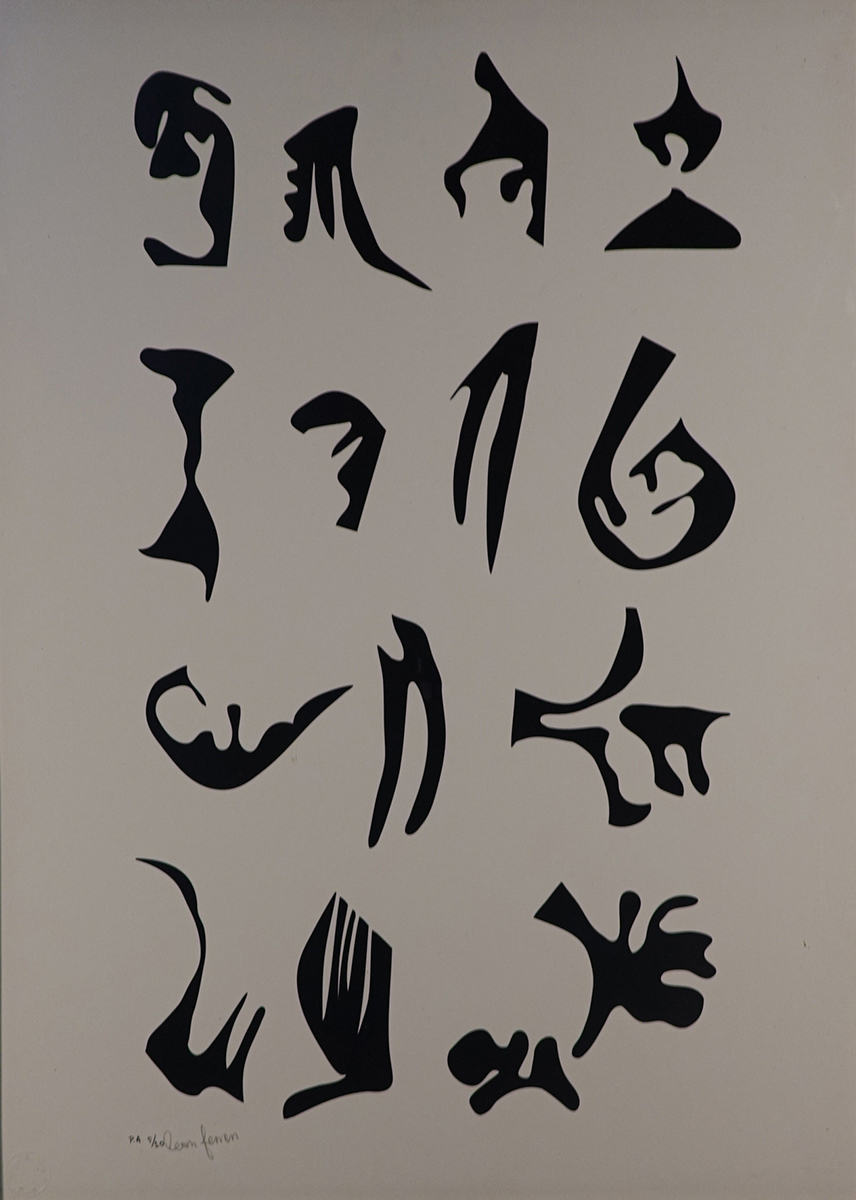 P.A 5/30 Leon ferrari